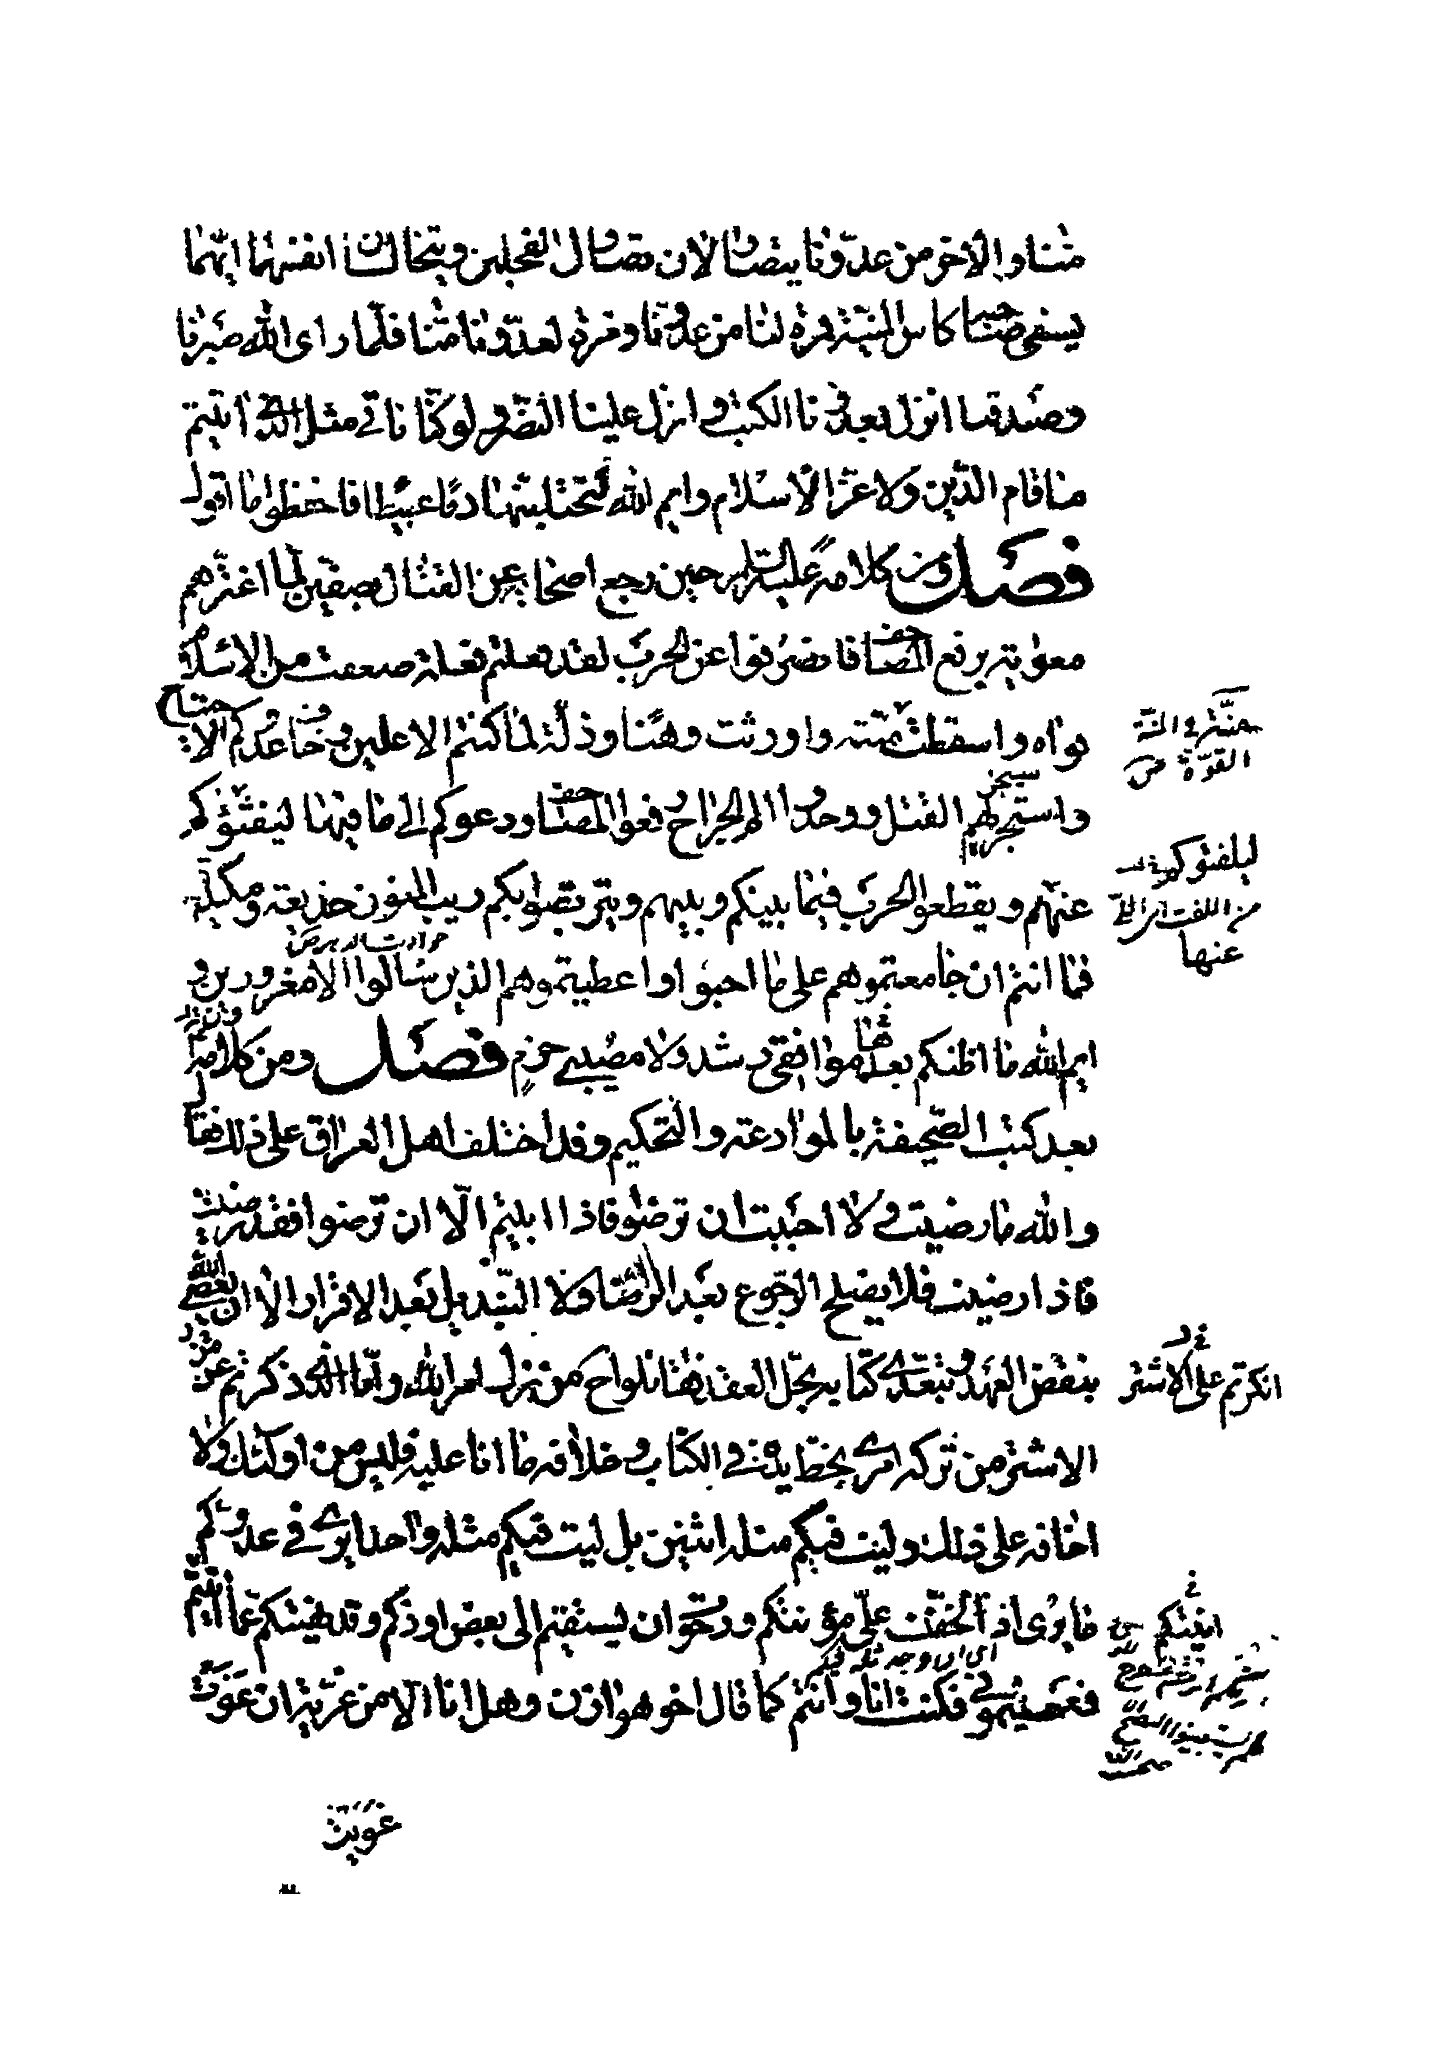 منا والاخر من عدونا يتصاولان تصاول الفحلين ويتخالسان انفسهما ايهما
يسقي صاحبه كاس المنية فمرة لنا من عدونا ومرة لعدونا منا فلما راى الله صبرنا
وصدقنا انزل بعدونا الكبت وانزل علينا النصر ولو كنا ناتي مثل الذي اتيتم
منا قام الدين ولا عز الاسلام وايم الله لتحتلبنها دما عبيطا فاحفظوا ما اقول
فصل ومن كلامه عليه السلم حين رجع اصحابه عن القتال بصفين لما اغترهم
معوية برفع المصاحف فانصرفوا عن الحرب لقد فعلتم فعلة ضعضعت من الاسلام
قواه واسقطت منته واورثت وهنا وذلة لما كنتم الاعلين وخاف عدوكم الاجتياح
واستحر بهم القتل ووجدوا الم الجراح رفعوا المصاحف ودعوكم الى ما فيها ليفتؤكم
عنهم ويقطعوا الحرب فيما بينكم وبينهم ويتربصوا بكم ريب المنون خديعة ومكيدة
حوادث الدهر ص
فما انتم ان جامعتموهم على ما احبوا واعطيتموهم الذين سالوا الا مغرورين و
ايم الله ما اظنكم بعدها موافقي رشد ولا مصيبي حزم فصل ومن كلامه
بعد كتب الصحيفة بالموادعة والتحكيم وقد اختلف اهل العراق على ذلك فقال
والله ما رضيت ولا احببت ان ترضوا فاذا ابيتم الا ان ترضوا فقد رضيت
فاذا رضيت فلا يصلح الرجوع بعد الرضا ولا التبديل بعد الاقرار الا ان يعصى الله
بنقض العهد ويتعدى كتابه بحل العقد فقاتلوا ح من ترك امر الله واما الذي ذكرتم عن
الاشتر من تركه امري بخط يده في الكتاب وخلافه ما انا عليه فليس من اولئك ولا
اخافه على ذلك وليت فيكم مثله اثنين بل ليت فيكم مثله واحدا يرى في عدوكم
ما يرى اذا لخفت علي مؤنتكم ورجوت ان يستقيم الى بعض اودكم وقد نهيتكم عما اتيتم
فعصيتموني فكنت انا وانتم كما قال اخو هوازن وهل انا الا من غزية ان غوت
غويت
القوة ص
ليلفتوكم
من اللفت
عنها
انكرتم على الاشتر